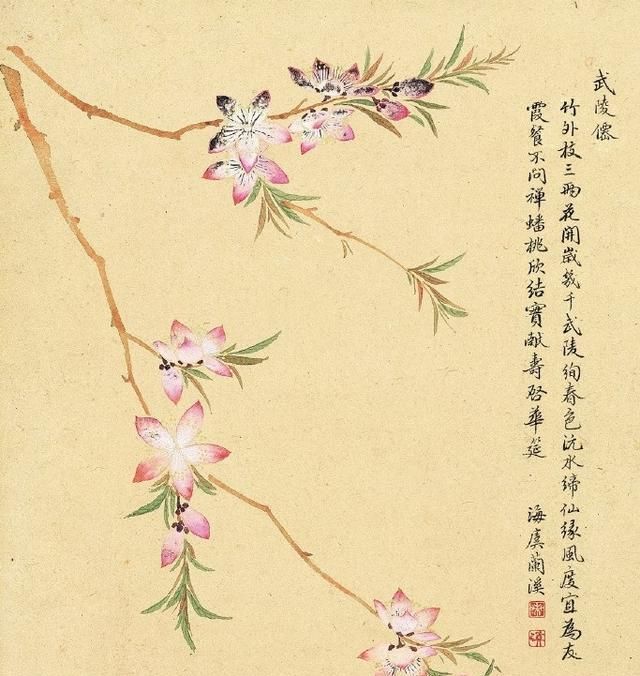 武陵僊
竹外枝三兩花開嵗幾千武陵絢春色沅水締仙緣風度宜為友
霞餐不問禪蟠桃欣結實献壽啓華筵
海虞蘭溪